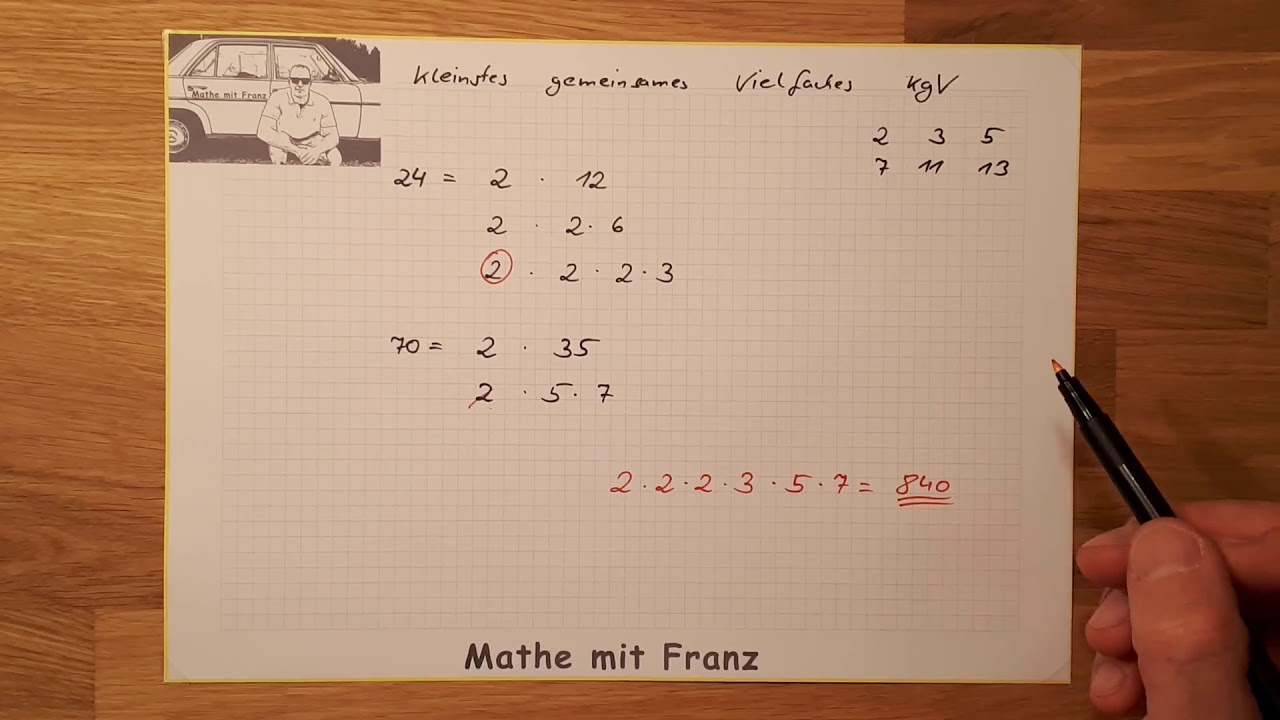 Mathe mit Franz
kleinstes gemeinsames Vielfaches kgV
2 3 5
7 11 13
24 = 2 · 12
2 · 2 · 6
2 · 2 · 2 · 3
70 = 2 · 35
2 · 5 · 7
2 · 2 · 2 · 3 · 5 · 7 = 840
Mathe mit Franz